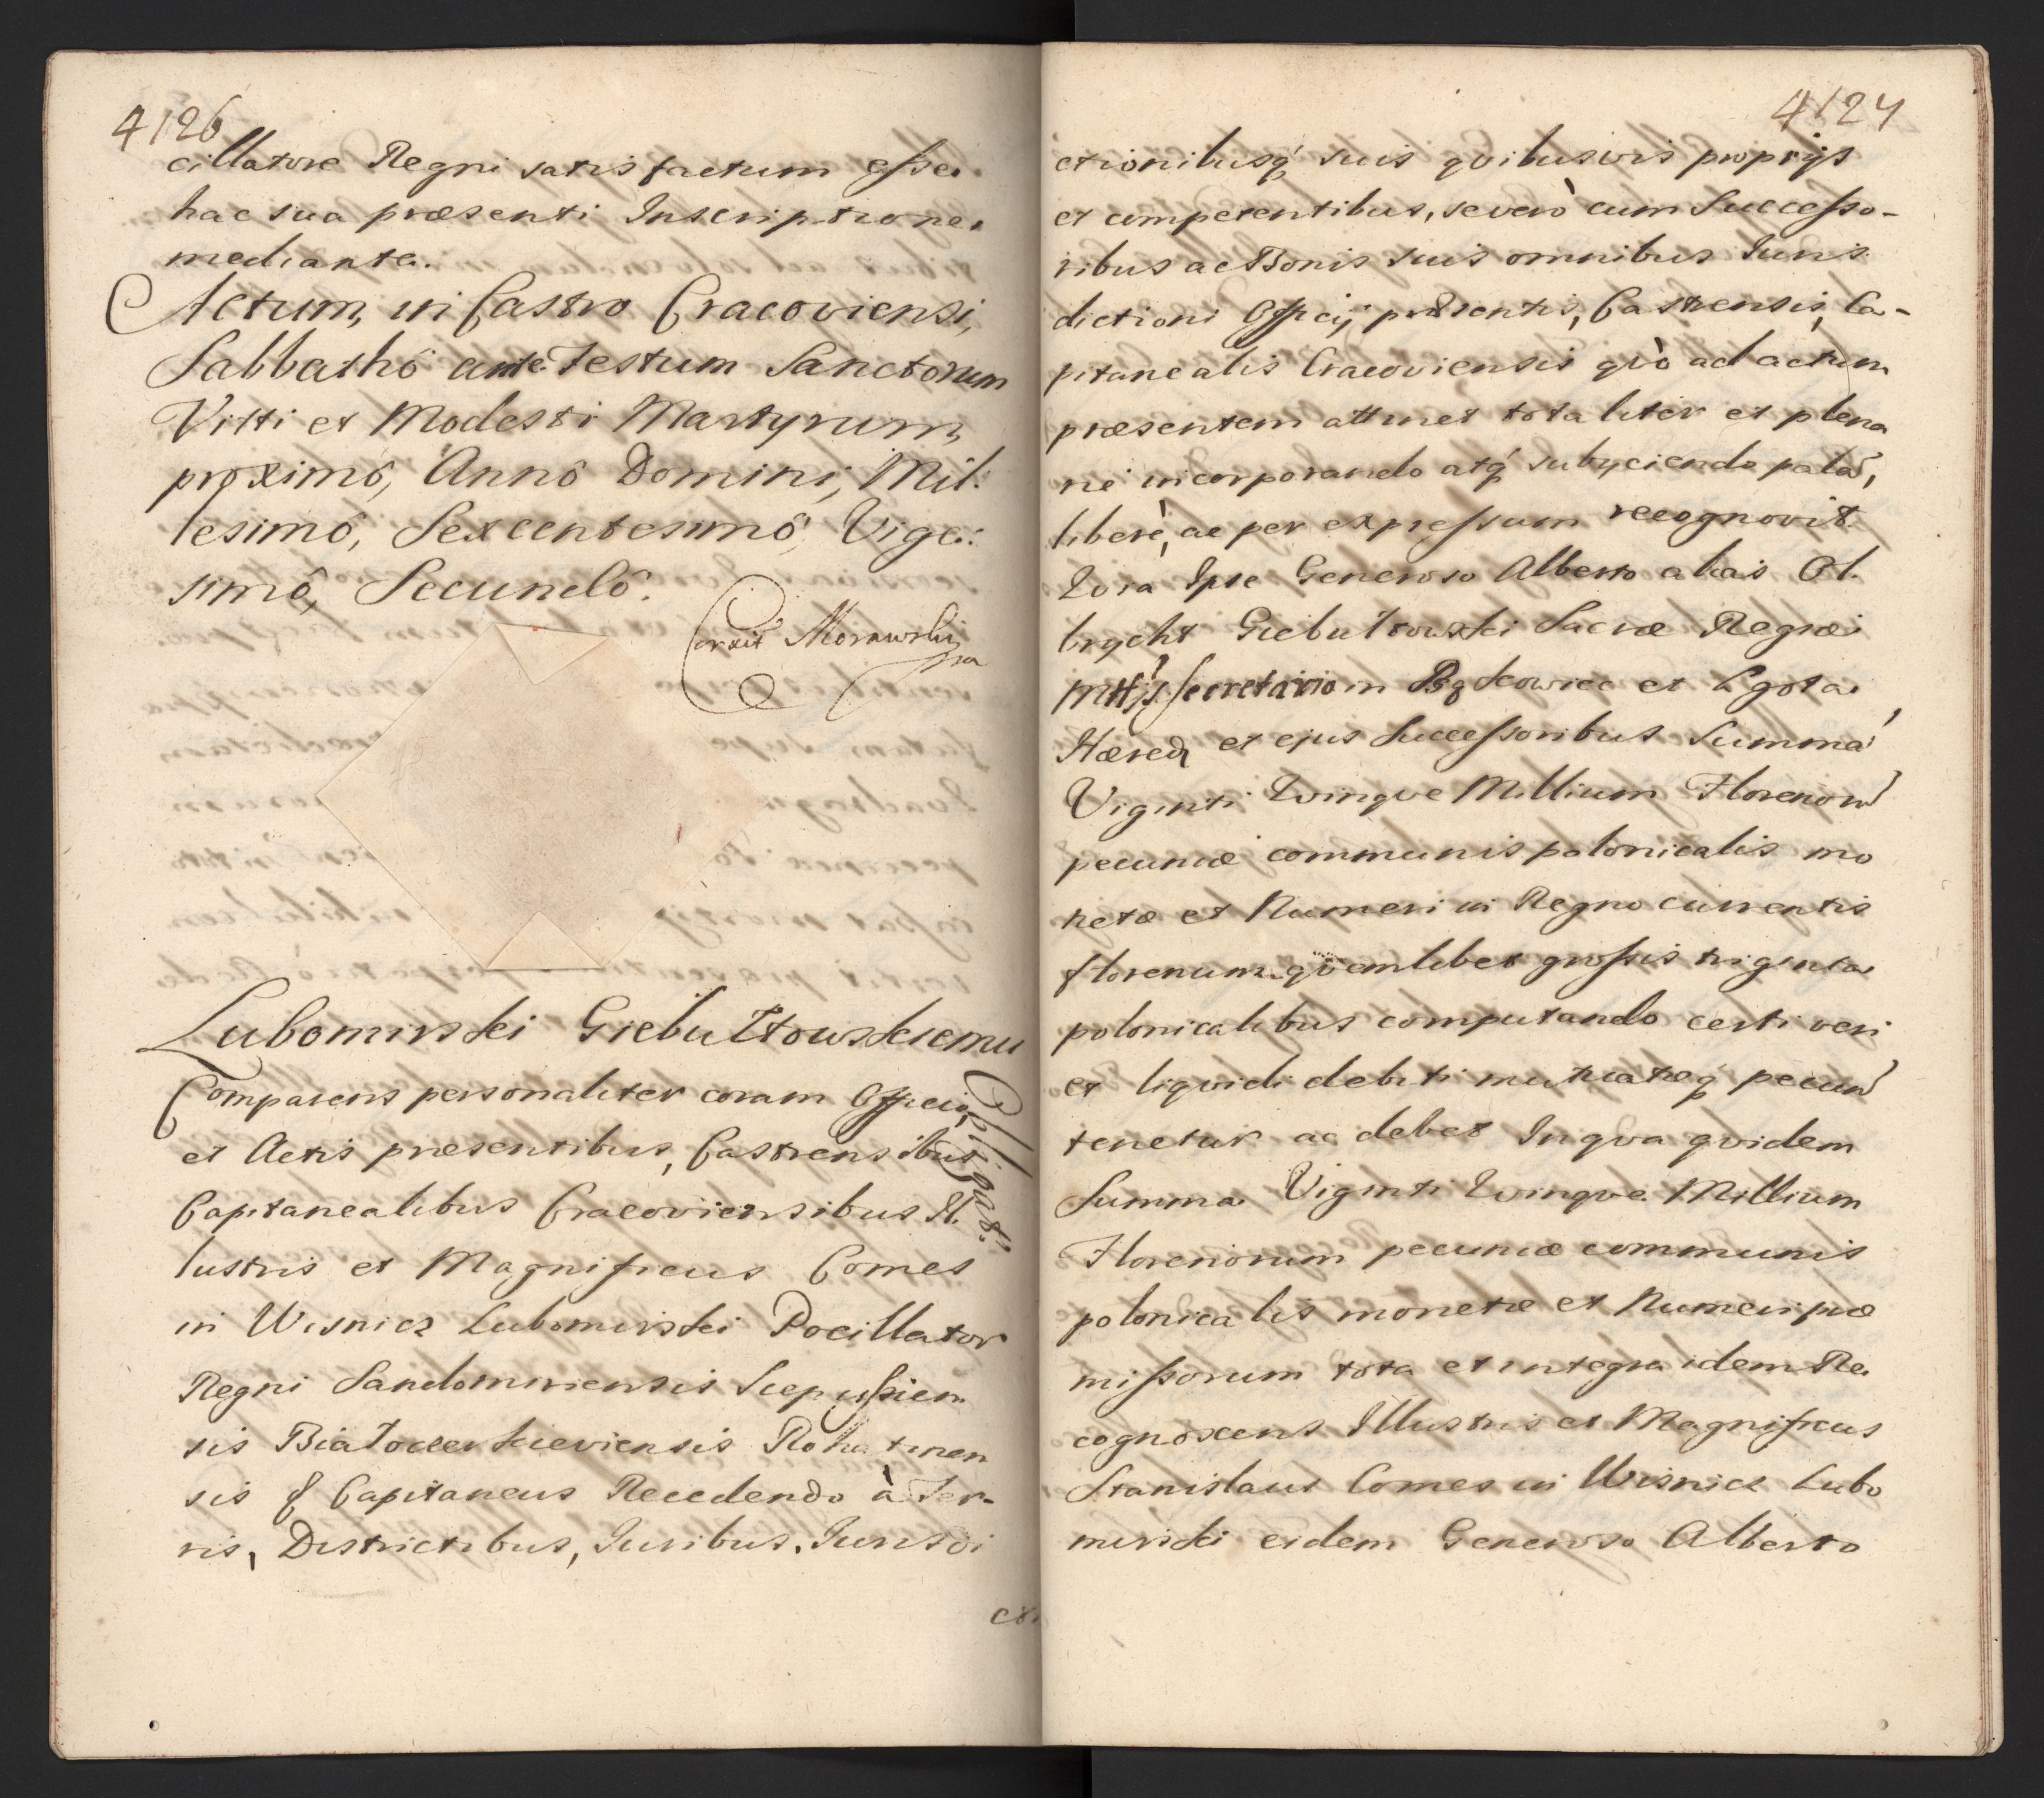 4126
cillatore Regni satisfactum esse
hac sua præsenti Inscriptione
mediante.
Actum, in Castro Cracoviensi,
Sabbathô ante Festum Sanctorum
Vitti et Modesti Martyrum,
proximô, Annô Domini, Mil:
lesimô, Sexcentesimô, Vige:
simô, Secundô.
Corexit Morawski
Lubomirski Giebułtowskiemu
Obligat:
Comparens personaliter coram Officio,
et Actis præsentibus, Castrensibus
Capitanealibus Cracoviensibus Il.
lustris et Magnificus Comes
in Wisnicz Lubomirski Pocillator
Regni Sandomiriensis Scepusien
sis Białocerkieviensis Rohatinen
sis & Capitaneus Recedendo à Ter-
ris, Districtibus, Juribus, Jurisdi
cti
4127
ctionibusq́ suis qvibusvis proprijs
et competentibus, se verò cum Successo-
ribus ac Bonis suis omnibus Juris
dictioni Officij præsentis, Castrensis, Ca-
pitanealis Cracoviensis qvò ad actum
præsentem attinet totaliter et plena
rie incorporando atq́ subyciendo palá,
liberè, ac per expressum recognovit.
Qvia Ipse Generoso Alberto alias Ol.
brycht Giebułtowski Sacræ Regiæ
Mttis Secretario in et Lgota
Hæred et ejus Successoribus Summá
Viginti Qvinqve Millium Florenor
pecuniæ communis polonicalis mo
netæ et Numeri in Regno currentis
florenum qvemlibet grossis triginta
polonicalibus computando certi veri
et liqvidi debiti mutuatæq́ pecun
tenetur ac debet In qva qvidem
Summa Viginti Qvinqve Millium
Florenorum pecuniæ communis
polonicalis monetæ et Numeri præ
missorum tota et integra idem Re
cognoscens Illustris et Magnificus
Stanislaus Comes in Wisnicz Lubo
mirski eidem Generoso Alberto